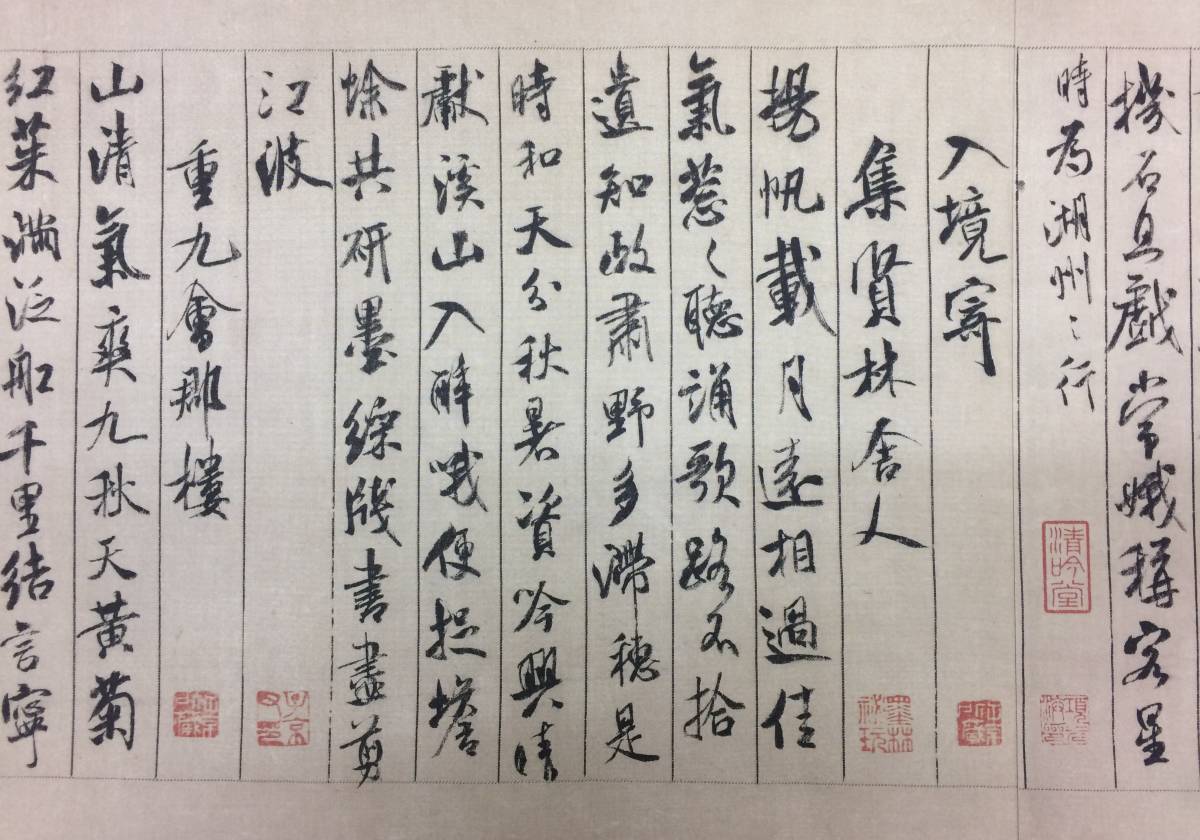 機石且戲常娥稱客星
時為湖州之行
清吟堂
入境寄
集賢林舍人
揚帆載月遠相過佳
氣葱々聽誦歌路不拾
遺知政肅野多滯穗是
時和天分秋暑資吟興晴
獻溪山入醉哦便捉蟾
蜍共研墨綵牋書盡剪
江波
重九會郡樓
山清氣爽九秋天黃菊
紅茱滿泛船千里結言寧